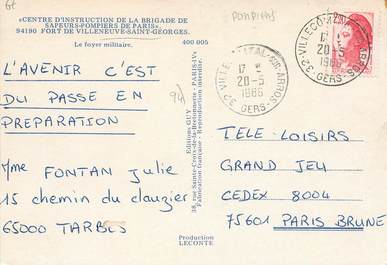 «CENTRE D'INSTRUCTION DE LA BRIGADE DE
SAPEURS-POMPIERS DE PARIS»,
94190 FORT DE VILLENEUVE-SAINT-GEORGES.
Le foyer militaire. 400 005
POMPIERS
L'AVENIR C'EST
DU PASSE EN
PREPARATION
Mme FONTAN Julie
15 chemin du clauzier
65000 TARBES
(94)
Editions GUY
38, rue Sainte-Croix-de-la-Bretonnerie - PARIS-IVe
Fabrication française - Reproduction interdite.
Production
LECONTE
17 H
20-
1986
32 GERS
17 H
20-
1986
32 GERS
TELE-LOISIRS
GRAND JEU
CEDEX 8004
75601 PARIS BRUNE